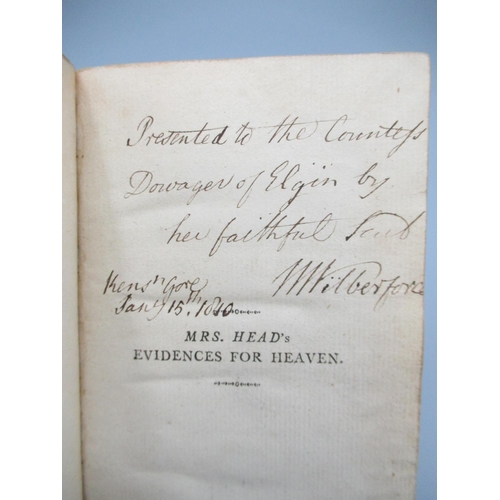 Presented to the Countess
Dowager of Elgin by
her faithful Servt
W Wilberforce
Kensn Gore
Jany 15th. 1810
MRS. HEAD's
EVIDENCES FOR HEAVEN.